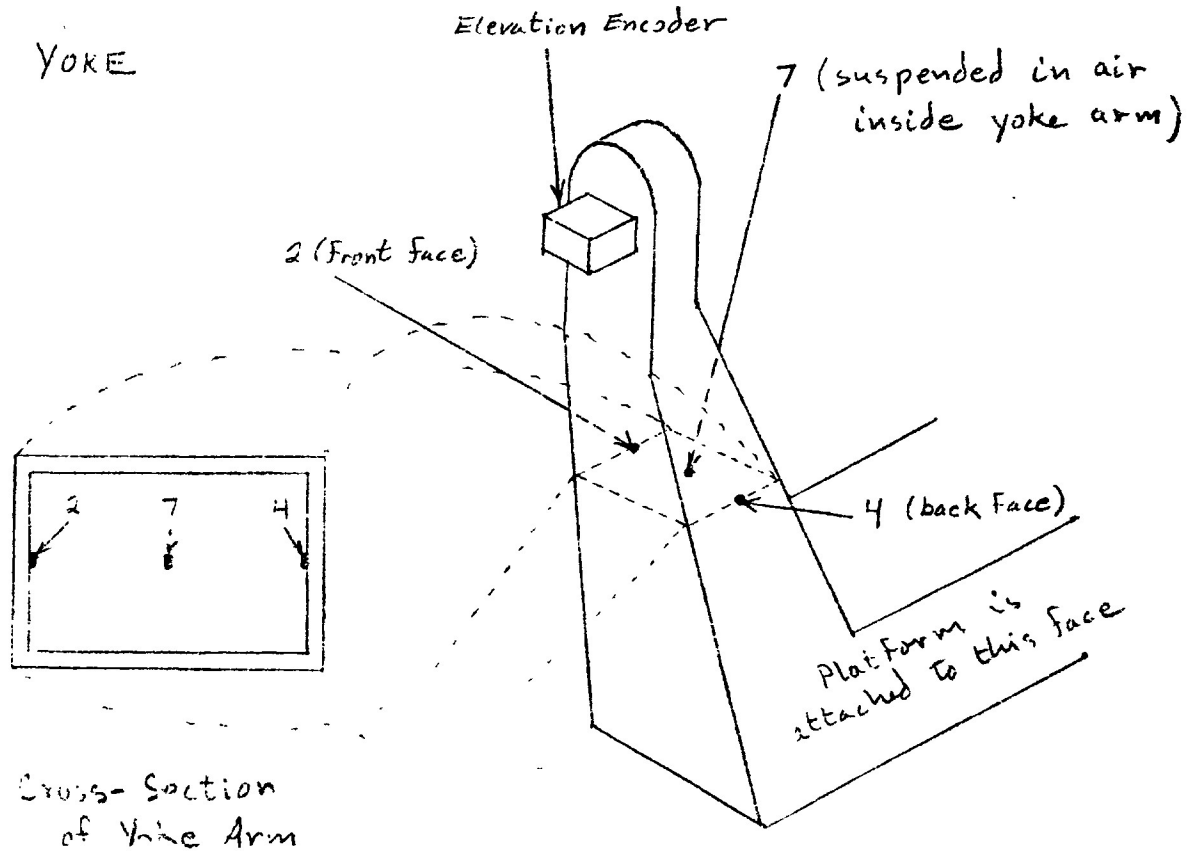 Elevation Encoder
YOKE
7 (suspended in air
inside yoke arm)
2 (Front Face)
2 7 4
4 (back Face)
Platform is
attached to this face
Cross-Section
of Yoke Arm